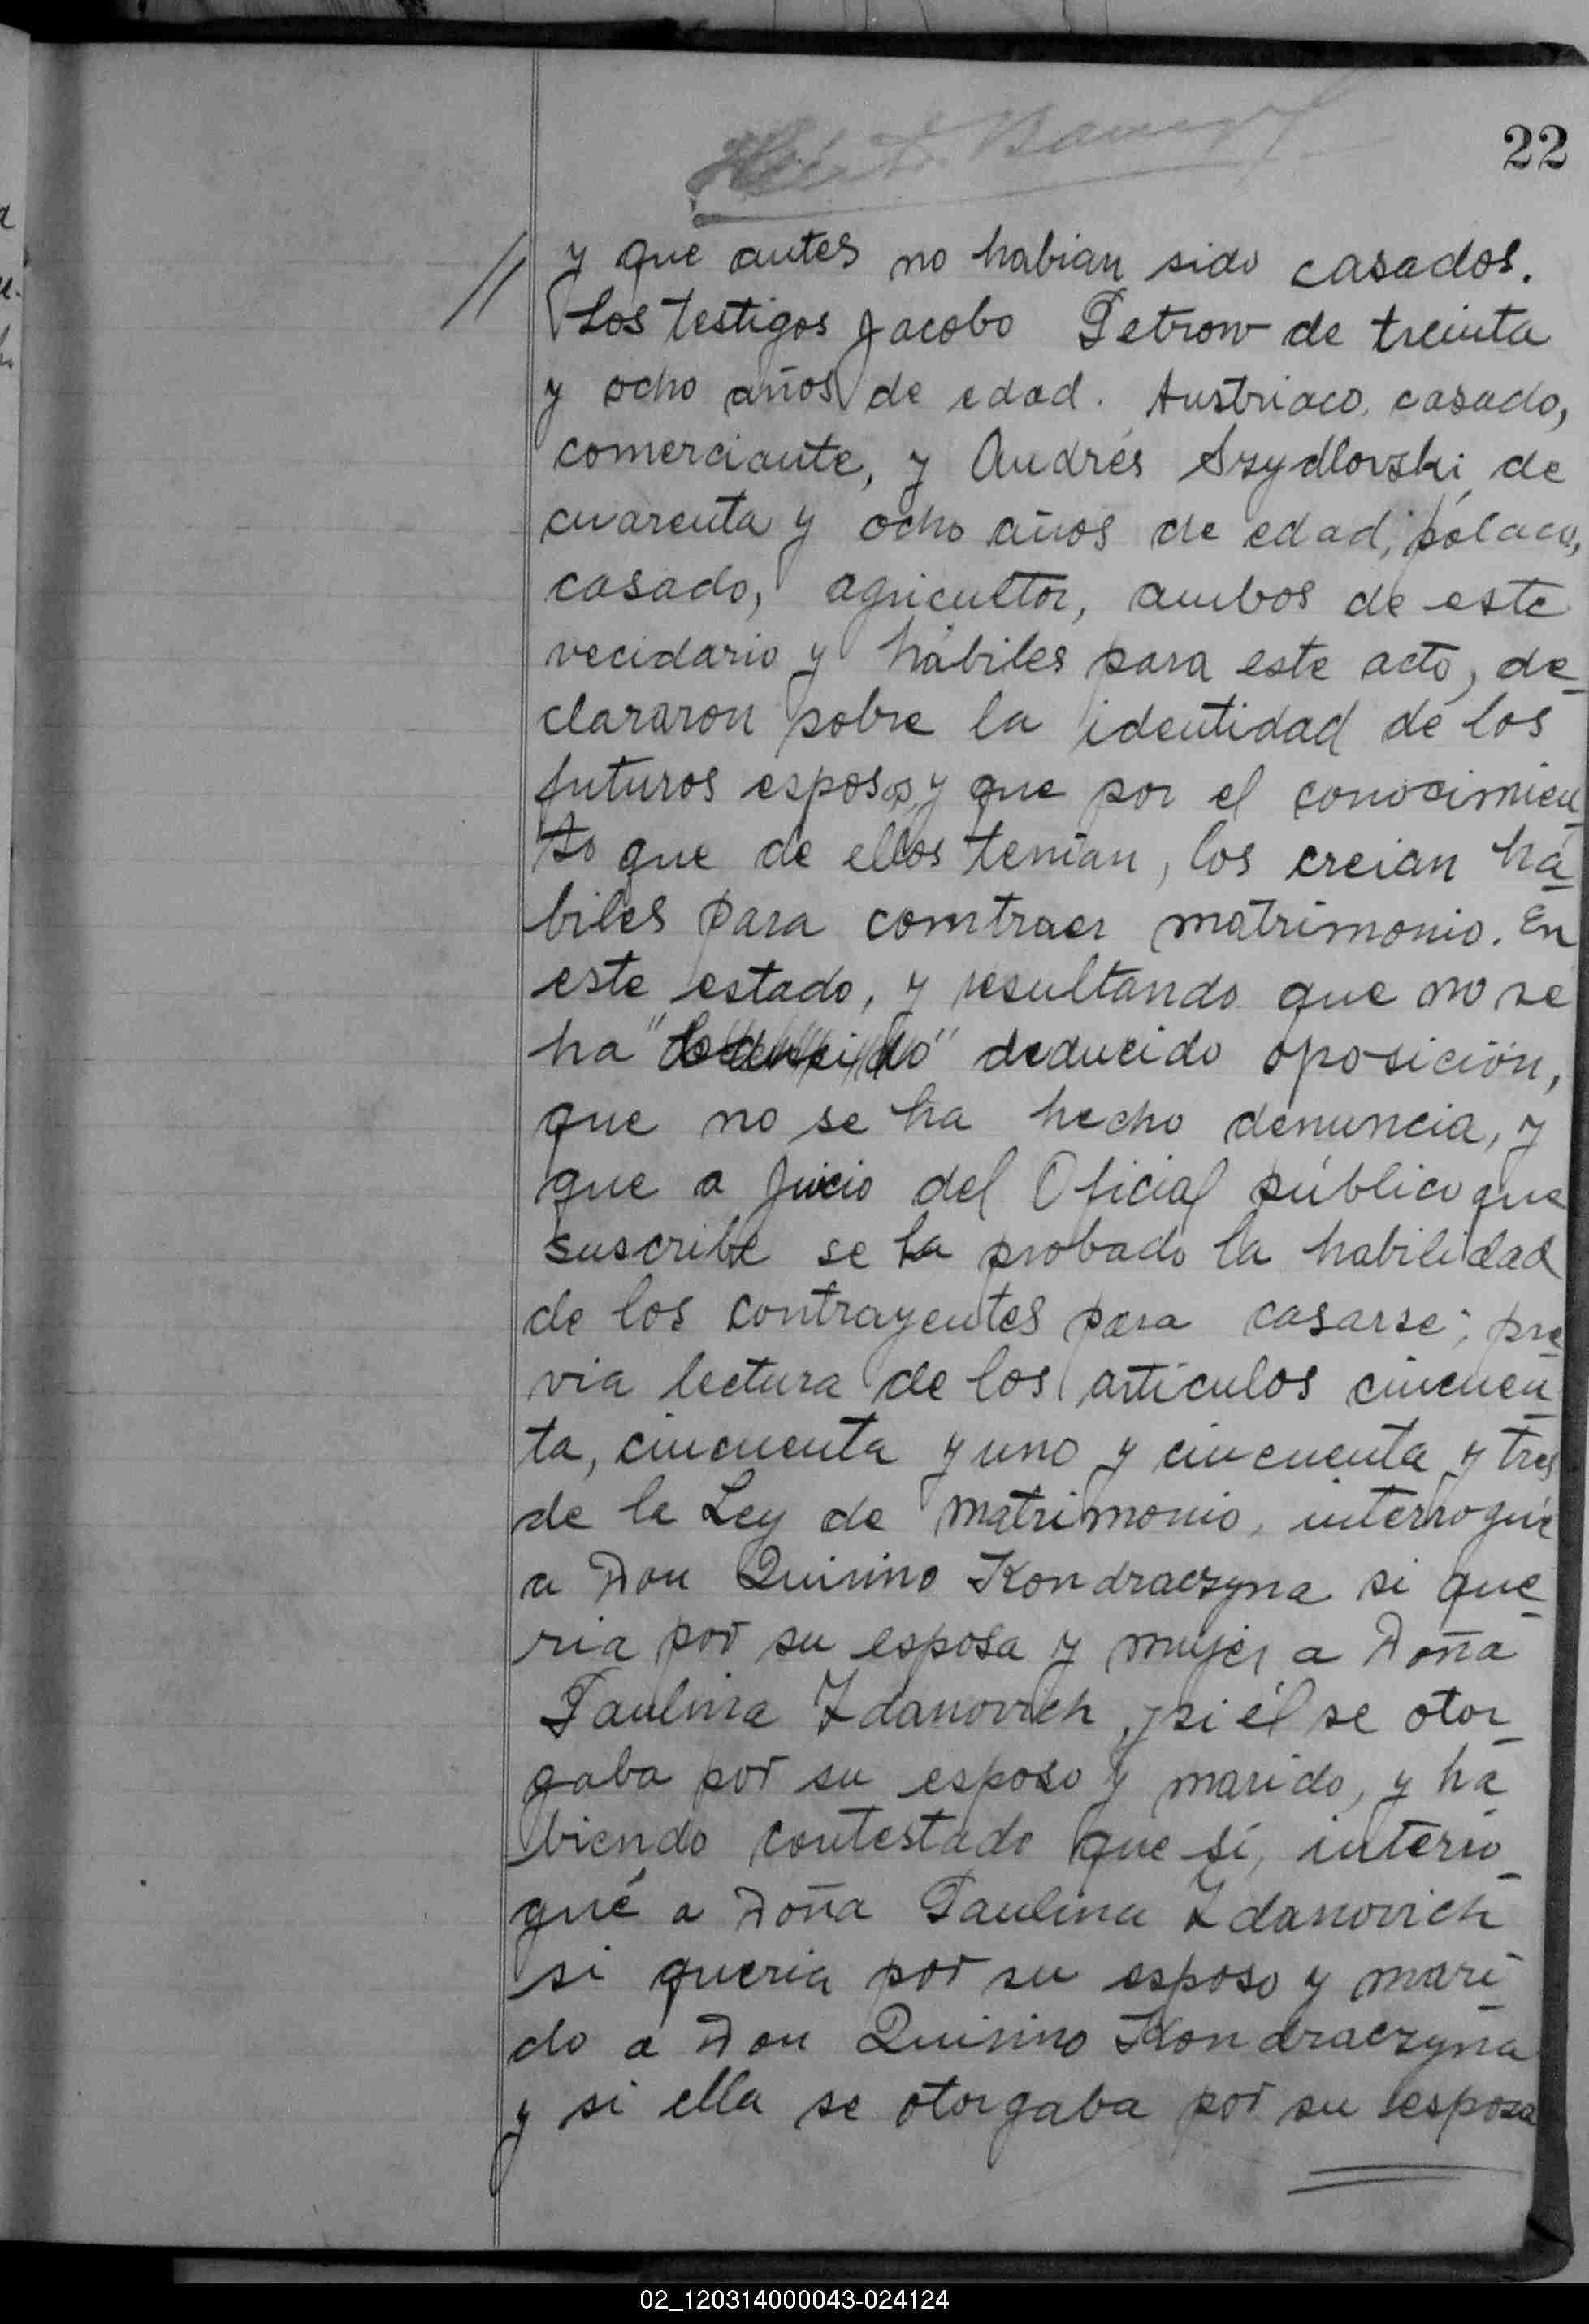 22
y que antes no habian sido casados.
Los testigos Jacobo Petrow de treinta
y ocho años de edad. Austriaco, casado,
comerciante, y Andrés Szydlovski, de
cuarenta y ocho años de edad, polaco,
casado, agricultor, ambos de este
vecidario y hábiles para este acto, de-
clararon sobre la identidad de los
futuros esposos, y que por el conocimien-
to que de ellos tenian, los creian há-
biles para comtraer matrimonio. En
este estado, y resultando que no se
ha " " deducido oposición,
que no se ha hecho denuncia, y
que a juicio del Oficial público que
suscribe se ha probado la habilidad
de los contrayentes para casarse; pre-
via lectura de los artículos cincuen-
ta, cincuenta y uno y cincuenta y tres
de la Ley de Matrimonio, interrogué
a Don Quirino Kondraczyna si que-
ria por su esposa y mujer a Doña
Paulina Zdanovich, y si él se otor-
gaba por su esposo y marido, y ha-
biendo contestado que sí, interro-
gué a Doña Paulina Zdanovich
si queria por su esposo y mari-
do a Don Quirino Kondraczyna
y si ella se otorgaba por su esposa
02_120314000043-024124